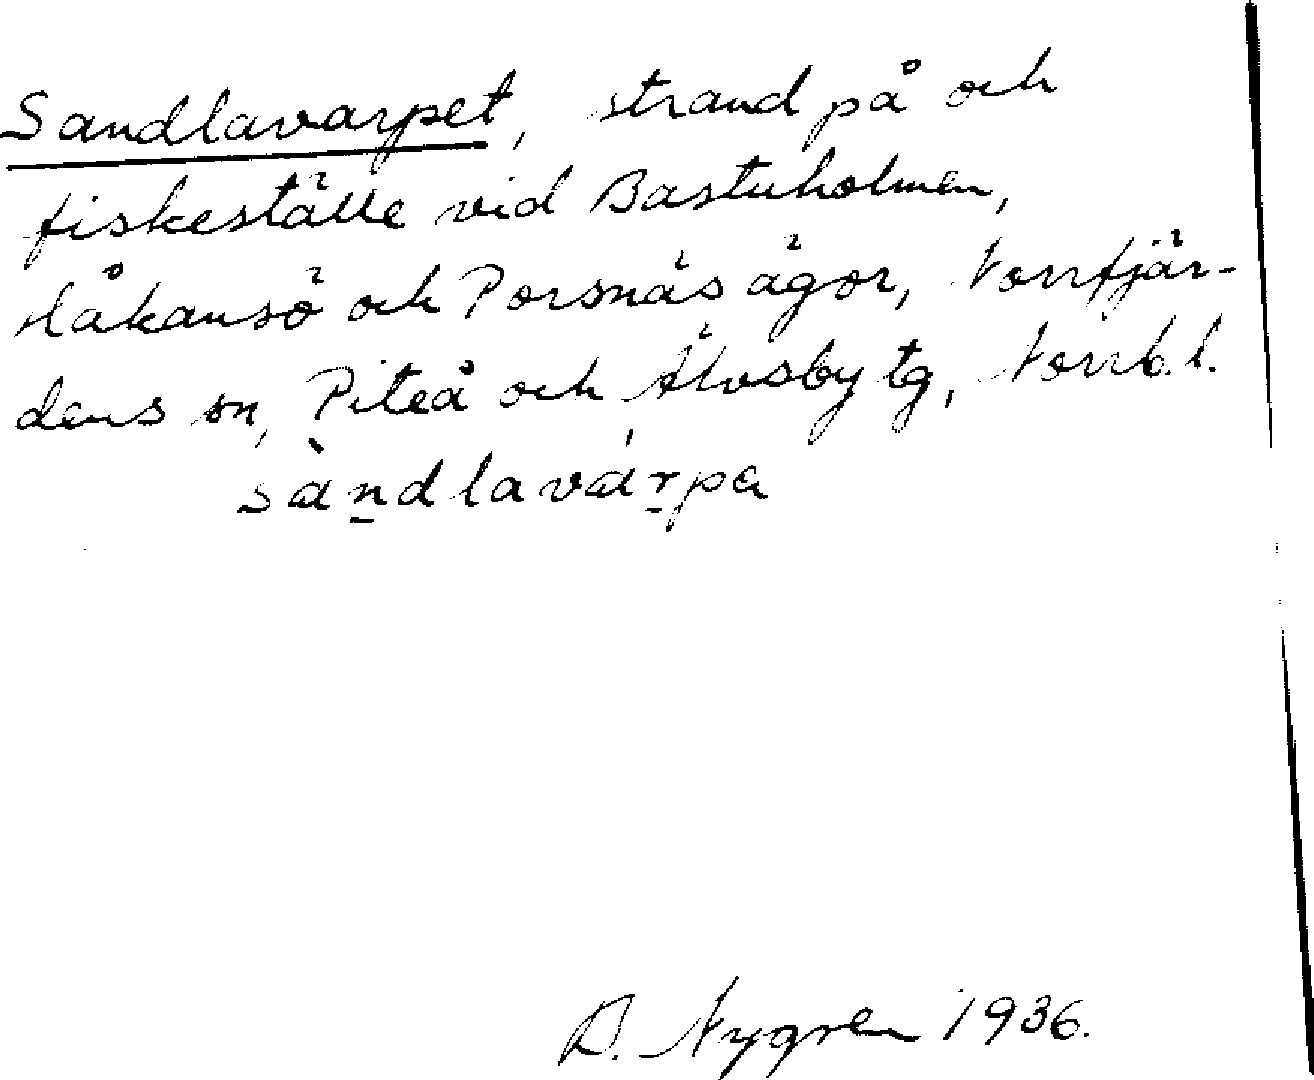 Sandlavarpet, strand på och
fiskeställe vid Bastuholmen,
Håkansö och Porsnäs ägor, Norrfjär-
dens sn, Piteå och Älvsby tg, Norrb. l.
sàn̲dlavár̲pa
D. Nygren 1936.